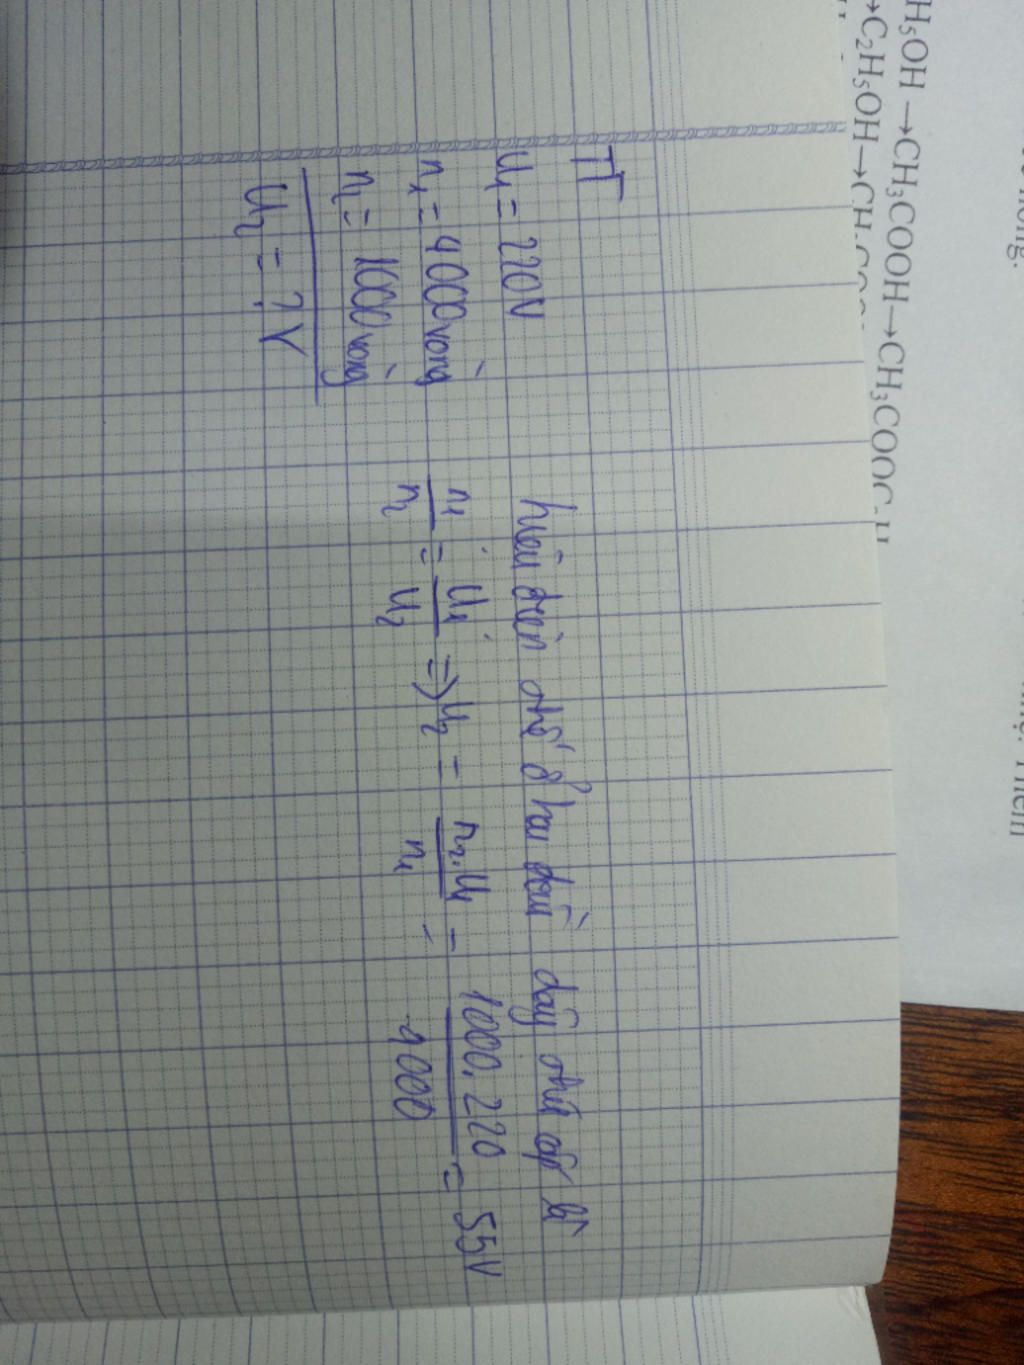 H₅OH→CH₃COOH→CH₃COOC₂H
→C₂H₅OH→CH
TT
U₁ = 220V
n₁ = 4000 vòng
n₂ = 1000 vòng
U₂ = ? V
hiệu điện thế ở hai đầu dây thứ cấp là
n₁/n₂ = U₁/U₂ => U₂ = n₂.U₁/n₁ = 1000.220/4000 = 55V